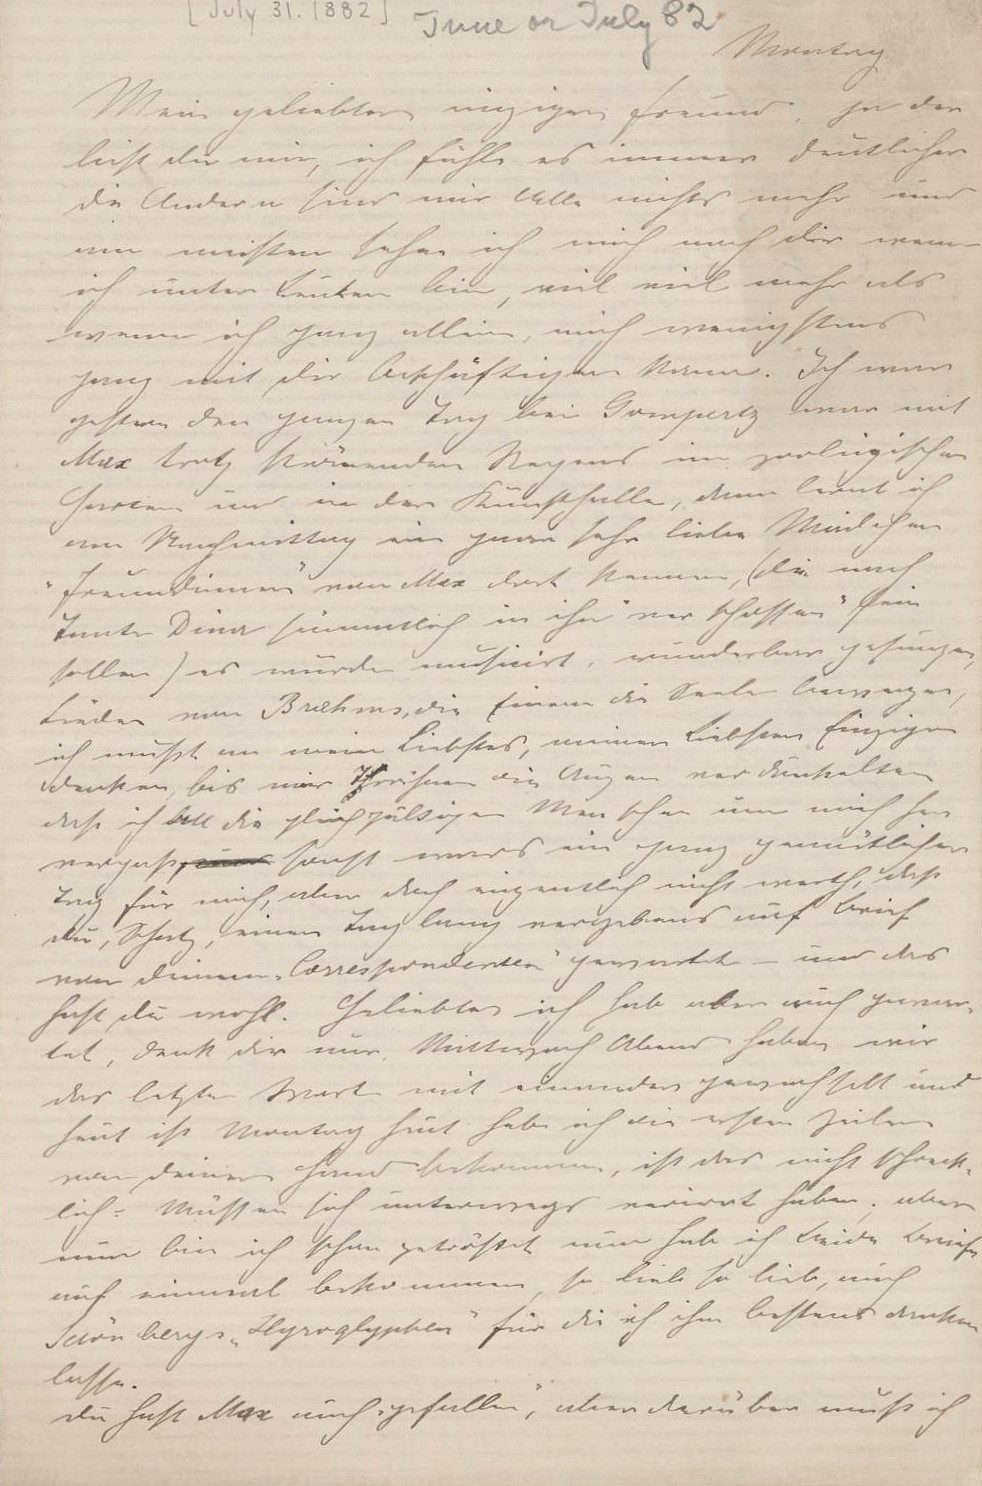 [July 31. 1882]
June or July 82
Montag
Mein geliebter einziger Freund, ja der
bist du mir, ich fühle es immer deutlicher
die Andern sind mir Alle nichts mehr und
am meisten sehne ich mich nach dir wenn
ich unter Leuten bin, viel viel mehr als
wenn ich ganz allein, mich wenigstens
ganz mit dir beschäftigen kann. Ich war
gestern den ganzen Tag bei Gompertz war mit
Max trotz strömenden Regens im zoologischen
Garten und in der Kunsthalle, dann lernt ich
am Nachmittag ein paar sehr liebe Mädchen
"Freundinnen" von Max dort kennen, (die nach
Tante Dina sämmtlich in ihn "verschossen" sein
sollen) es wurde musicirt, wunderbar gesungen,
Lieder von Brahms, die Einem die Seele bewegen,
ich mußt an mein Liebstes, meinen Liebsten Einzigen
denken, bis mir Thränen die Augen verdunkelten
daß ich all die gleichgültigen Menschen um mich her
vergaß, sonst wars ein ganz gemütlicher
Tag für mich, aber doch eigentlich nicht werth, daß
du, Schatz, einen Tag lang vergebens auf Brief
von deinem "Correspondenten" gewartet – und das
hast du wohl. Geliebter ich hab aber auch gewar-
tet, denk dir nur, Mittwoch Abend haben wir
das letzte Wort mit einander gewechselt und
heut ist Montag heut habe ich die ersten Zeilen
von deiner Hand bekommen, ist das nicht schreck-
lich = Müssen sich unterwegs verirrt haben, aber
nun bin ich schon getröstet nun hab ich beide Briefe
auf einmal bekommen, so lieb so lieb, auch
Schönbergs "Hyroglyphen" für die ich ihm bestens danken
lasse.
Du hast Max auch "gefallen", aber darüber muß ich